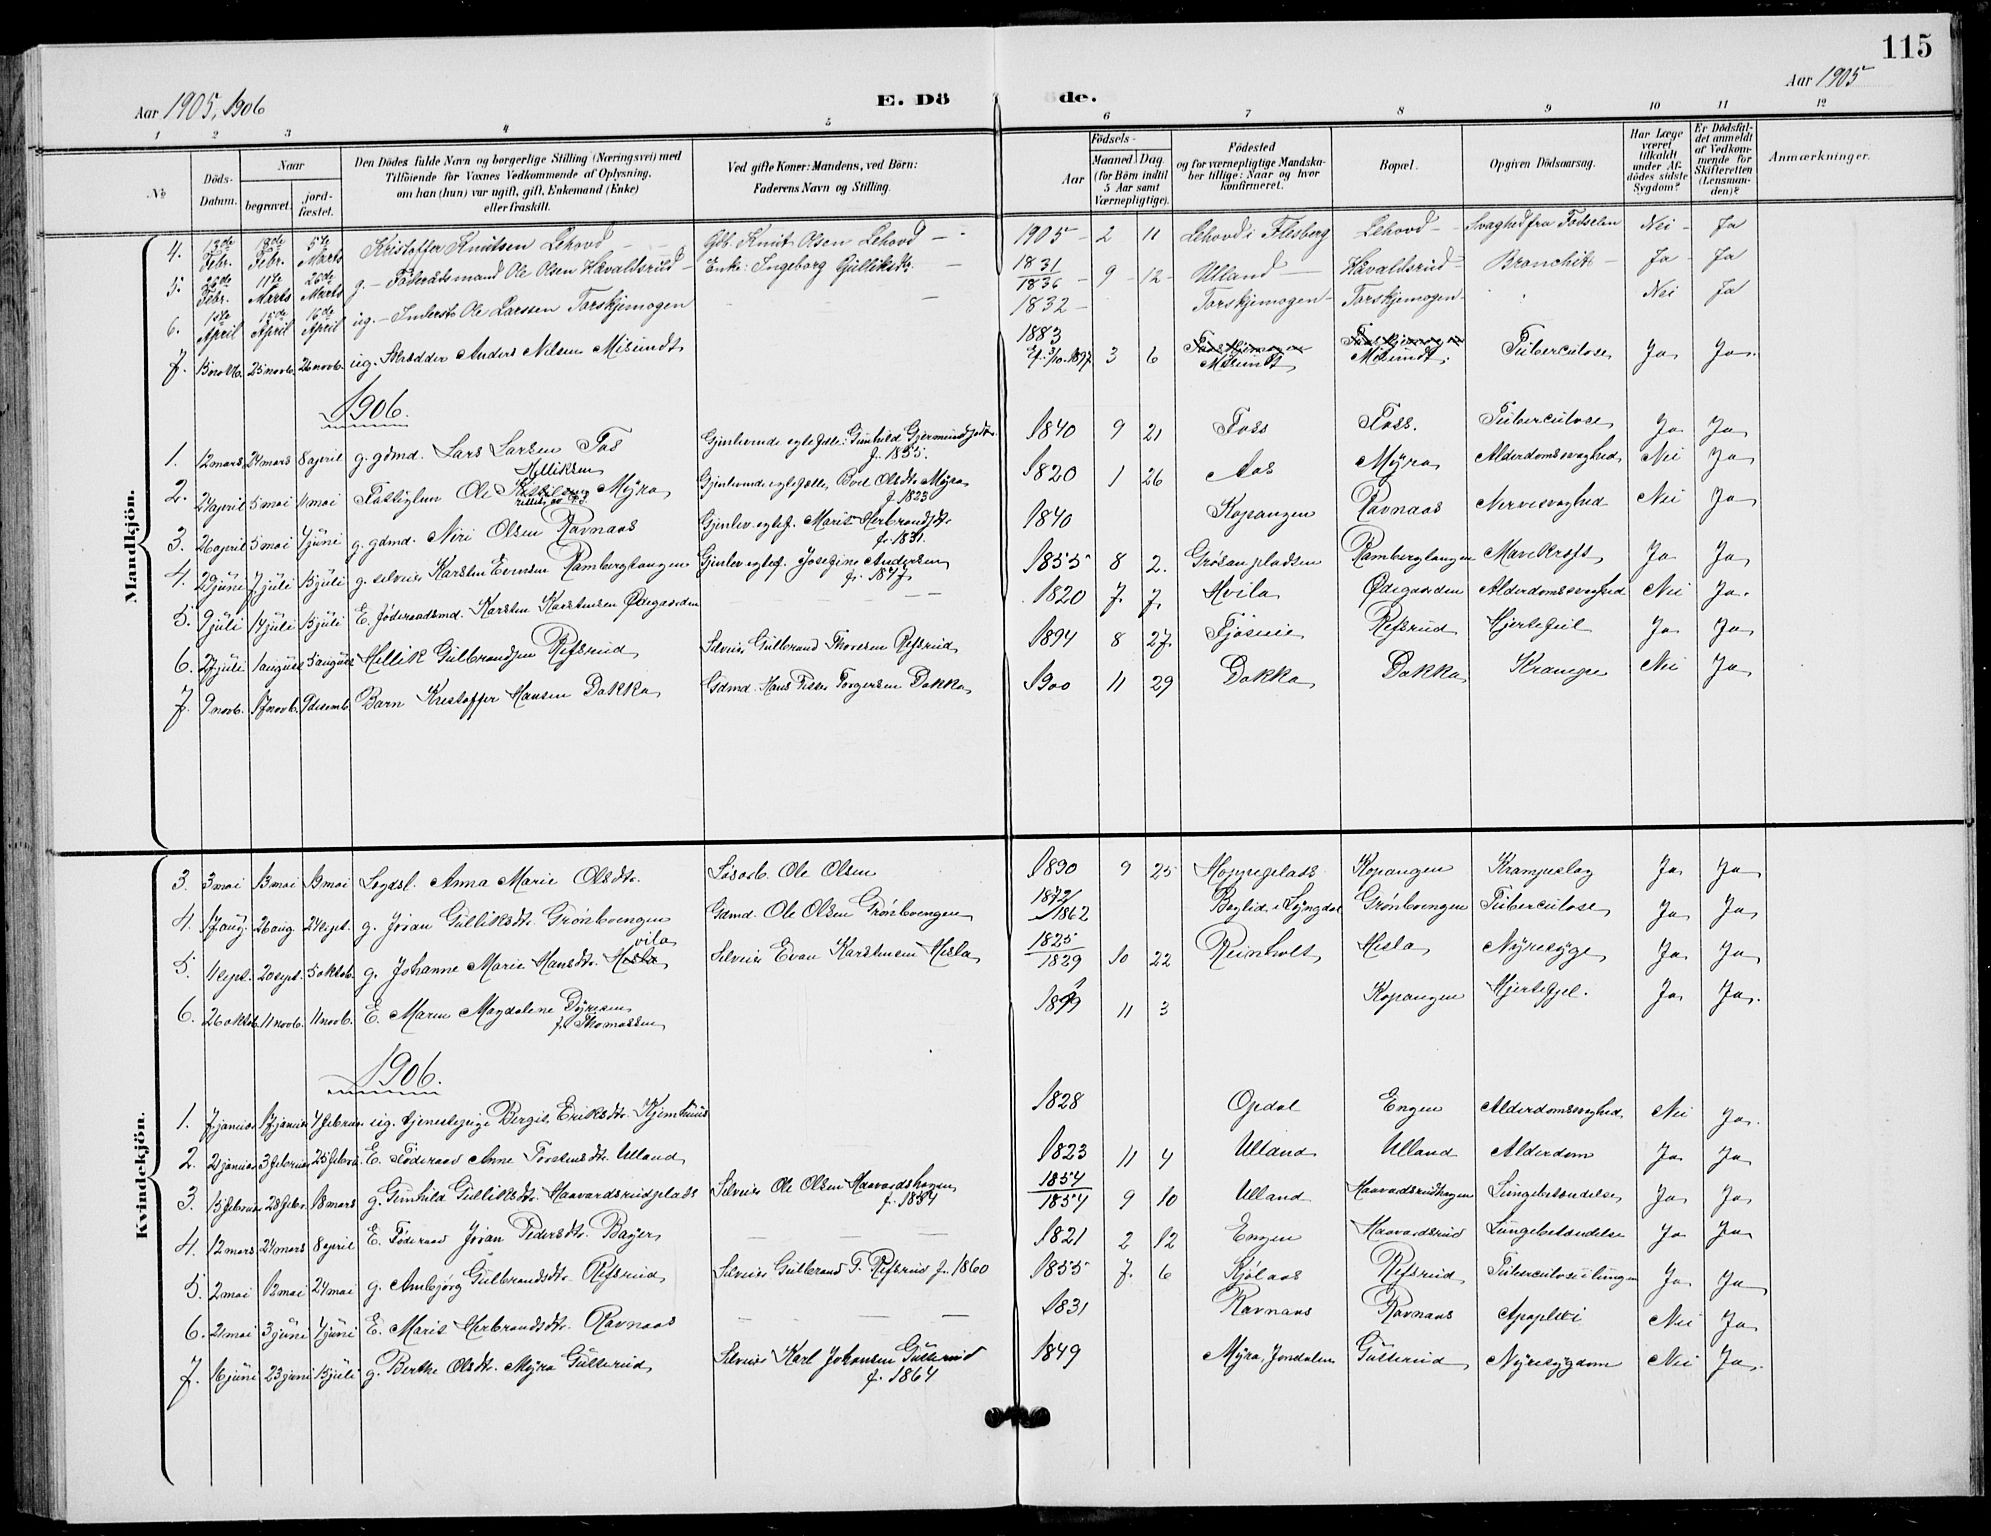 115
Aar 1905, 1906
E. Dö de.
Aar 1905
1 2 3 4 5 6 7 8 9 10 11 12
No
Döds-Datum.
Naar
begravet.
jord-fæstet.
Den Dödes fulde Navn og borgerlige Stilling (Næringsvei) med
Tilföiende for Voxnes Vedkommende af Oplysning,
om han (hun) var ugift, gift, Enkemand (Enke)
eller fraskilt.
Ved gifte Koner: Mandens, ved Börn:
Faderens Navn og Stilling.
Födsels-
Aar
Maaned Dag
(for Börn indtil
5 Aar samt
Værnepligtige).
Födested
og for værnepligtige Mandska-
ber tillige: Naar og hvor
konfirmeret.
Bopæl.
Opgiven Dödsaarsag.
Har Læge
været
tilkaldt
under Af-
dödes sidste
Sygdom?
Er Dödsfal-
det anmeldt
af Vedkom-
mende for
Skifteretten
(Lensman-
den)?
Anmærkninger.
Mandkjön.
4. 13de Febr. 18de Febr. 5te Marts Kristoffer Knutsen Lehovd Gbr. Knut Olsen Lehovd 1905 2 11 Lehovd i Flesberg Lehovd Svaghed fra Fødselen Nei Ja
5. 26de Febr. 11te Marts 26de Marts g. Föderaadsmand Ole Olsen Håvaldsrud Enke: Ingeborg Gulliksdtr. 1831 1836 9 12 Ulland Håvaldsrud Bronchit Ja Ja
6. April April 16de April ug. Inderst Ole Larssen Torskjemogen 1832 Torskjemogen Torskjemogen Nei Ja
7. 15 novb. 25 novb. 26 novb. ug. Skrædder Anders Nilsen Misundt 1883 3/10. 1897 3 6 Misundt Misundt Tuberculose Ja Ja
1906.
1. 12 mars 24 mars 8 april g. gdmd. Lars Larsen Fos Gjenlevende egtefælle: Gunhild Gjermundsdtr. f. 1855. 1840 9 21 Foss Foss. Tuberculose Ja Ja
2. 24 april 5 mai 4 mai Fattiglem Ole Helliksen Myra Gjenlevende egtefælle Boel Olsdtr. Myra f. 1823 1820 1 26 Aas Myra Alderdomssvaghed Nei Ja
3. 26 april 5 mai 4 juni g. gdmd. Niri Olsen Ravnaas Gjenlev. egtef. Marit Herbrandsdtr. f. 1831. 1840 Kopangen Ravnaas Nervesvaghed Nei Ja
4. 29 juni 7 juli 15 juli g. selveier Karsten Evensen Ramberglangen Gjenlev. egtef. Josefine Andersen f. 1847 1855 8 2. Grösanpladsen Ramberglangen Mavekræft Ja Ja
5. 9 juli 14 juli 15 juli E. föderaadsmd. Karsten Karstensen Ødegaarden 1820 7. 7. Hvila Ødegaarden Alderdomssvaghed Nei Ja.
6. 27 juli 1 august 5 august Hellik Gulbrandsen Refsrud Selveier Gulbrand Thoresen Refsrud 1894 8 27. Fjösneie Refsrud Hjertefeil Ja Ja
7. 9 novb. 17 novb. 9 desemb. Barn Kristoffer Hansen Dokka Gdmd. Hans Peter Torgersen Dokka 1900 11 29 Dokka Dokka Krampe Nei Ja
Kvindekjön.
3. 3 mai 13 mai 13 mai Legdsl. Anna Marie Olsdtr. Lösarb. Ole Olsen 1890 9 25 Hoppeplads Kopangen Krampeslag Ja Ja
4. 17 aug. 26 aug. 24 sept. g. Jöran Gulliksdtr. Grönbvengen Gdmd. Ole Olsen Grönbvengen 1872/1862 Baglid i Lyngdal Grönbvengen Tuberculose Ja Ja
5. 11 sept. 20 sept. 5 oktob. g. Johanne Marie Hansdtr. Hvila Selveier Even Karstensen Hisla 1825 1829 10 22 Reinholt Hisla Nyresyge Ja Ja
6. 26 oktob. 11 novb. 11 novb. E. Maren Magdalene Dyresen f. Thomassen 11 3 Kopangen Hjertefejl. Ja Ja.
1906.
1. 7 januar 17 januar 4 februar ug. tjenestepige Bergit Eriksdtr. Kjemhus 1828 Opdal Engen Alderdomssvaghed Nei Ja.
2. 21 januar 3 februar 25 febru. E. Föderaad Anne Torstensdtr. Ulland 1823 11 4 Ulland Ulland Alderdom Ja Ja
3. 15 februar 28 febr. 18 mars g. Gunhild Gulliksdtr. Haavardsrudplads Selveier Ole Olsen Haavardshagen f. 1854 1854 1854 9 10 Ulland Haavardsrudhagen Lungebetændelse Ja Ja
4. 12 mars 24 mars 8 april E. Föderaad Jöran Pedersdtr. Bayer 1821 2 12 Engen Haavardsrud Lungebetændelse Ja Ja
5. 2 mai 12 mai 24 mai g. Ambjörg Gulbrandsdtr. Refsrud Selveier Gulbrand T. Refsrud f. 1860 1855 7. 6 Kjölaas Refsrud Tuberculose i lungen Ja Ja
6. 21 mai 3 juni 4 juni E. Marit Herbrandsdtr. Ravnaas 1831 Ravnaas Ravnaas Apoplexi Nei Ja
7. 16 juni 23 juni 15 juli g. Berthe Olsdtr. Myra Gulterud Selveier Karl Johansen Gulterud f. 1864 1849 Myra, Jondalen Gulterud Nyresygdom Nei Ja.